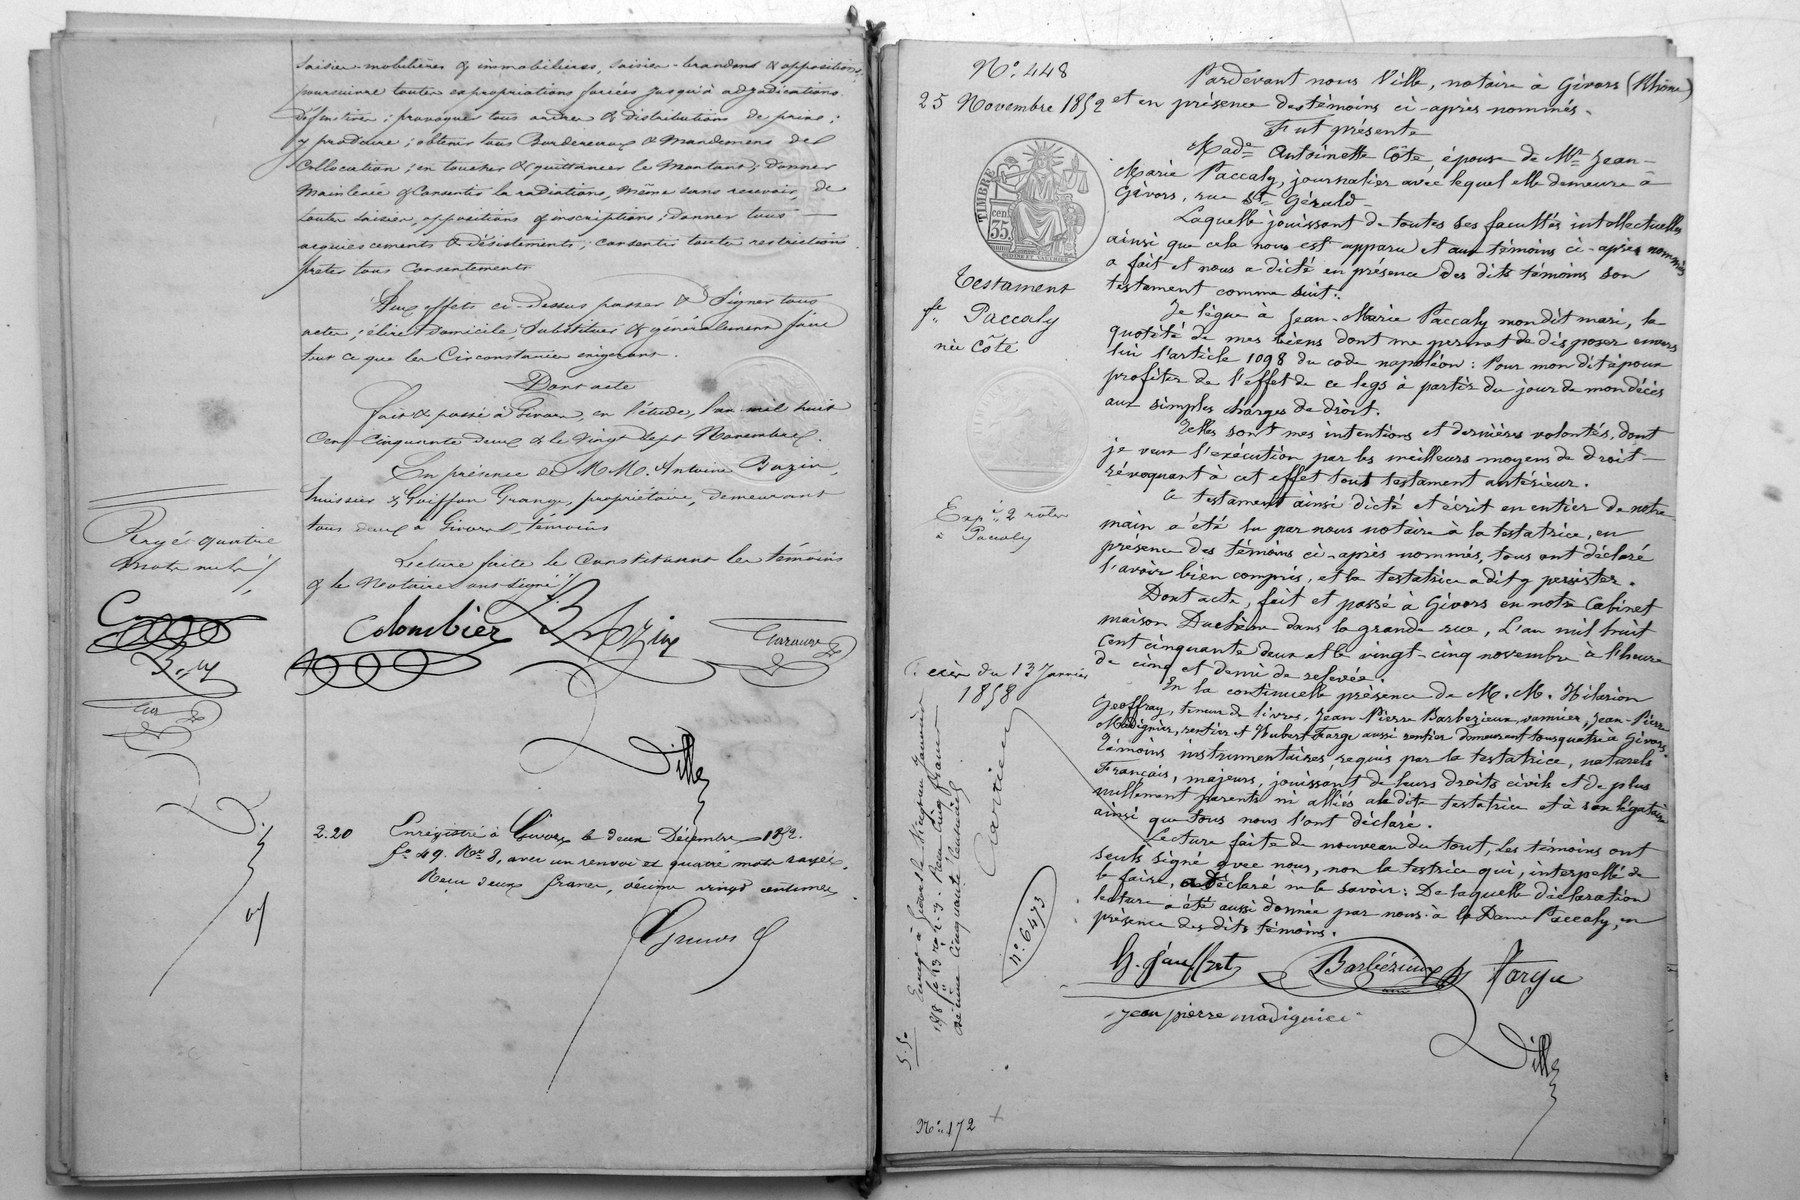 saisies-mobilières & immobilières, saisies-brandons & oppositions,
poursuivre toutes expropriations forcées jusqu'à adjudications
définitives ; provoquer tous ordres & distributions de prix ;
y produire ; obtenir tous Bordereaux & Mandemens de
Collocation ; en toucher & quittancer le Montant ; donner
Mainlevée & Consentir la radiations, même sans recevoir, de
toutes saisies, oppositions & inscriptions ; donner tous
acquiescements & désistements ; consentir toutes restrictions
prêter tous consentements
Aux effets ci-dessus passer & Signer tous
actes ; élire domicile ; Substituer & généralement faire
tout ce que les Circonstances exigeront.
Dont acte
fait & passé à Givors, en l'étude, l'an mil huit
Cent Cinquante deux & le vingt sept Novembre.
En présence de MM. Antoine Bazin,
huissier & Goiffon Grange, propriétaire, demeurant
tous deux à Givors, témoins
Lecture faite le Constituant les témoins
& le Notaire ont signé
Rayé quatre
mots nuls
Colombier Bazin
Ville
2.20 Enregistré à Givors le deux Décembre 1852.
fo 49. Ro 8, avec un renvoi et quatre mots rayés.
Reçu deux francs, décime vingt centimes
No. 448
25 Novembre 1852
TIMBRE
35 cen
Testament
fe Paccaly
née Côte
Expé 2 rôles
Paccaly
Décès du 13 Janvier
1858
no. 6473
5.50
No. 172
Pardevant nous Ville, notaire à Givors (Rhône)
et en présence des témoins ci-après nommés.
Fut présente
Made Antoinette Côte épouse de Mr Jean-
Marie Paccaly, journalier avec lequel elle demeure à
Givors, rue St Gérald
Laquelle jouissant de toutes ses facultés intellectuelles
ainsi que cela nous est apparu et aux témoins ci-après nommés
a fait et nous a dicté en présence des dits témoins son
testament comme suit :
Je lègue à Jean-Marie Paccaly mon dit mari, la
quotité de mes biens dont me permet de disposer envers
lui l'article 1098 du code napoléon : Pour mon dit époux
profiter de l'effet de ce legs à partir du jour de mon décès
aux simples charges de droit.
Telles sont mes intentions et dernières volontés, dont
je veux l'exécution par les meilleurs moyens de droit
révoquant à cet effet tout testament antérieur.
Ce testament ainsi dicté et écrit en entier de notre
main a été lu par nous notaire à la testatrice, en
présence des témoins ci-après nommés, tous ont déclaré
l'avoir bien compris, et la testatrice a dit y persister.
Dont acte, fait et passé à Givors en notre Cabinet
maison Duchène dans la grande rue, L'an mil huit
cent cinquante deux et le vingt-cinq novembre à l'heure
de cinq et demi de relevée.
En la continuelle présence de M. M. Hilarion
Geoffray, teneur de livres, Jean Pierre Barbezieux, vannier, Jean-Pierre
Madignier, rentier et Hubert Farge aussi rentier demeurant tous quatre à Givors.
Témoins instrumentaires requis par la testatrice, naturels
Français, majeurs, jouissant de leurs droits civils et de plus
nullement parents ni alliés à la dite testatrice et à son légataire
ainsi que tous nous l'ont déclaré.
Lecture faite de nouveau du tout, les témoins ont
seuls signé avec nous, non la testrice qui, interpellé de
le faire, a déclaré ne le savoir : De laquelle déclaration
lecture a été aussi donnée par nous à la Dame Paccaly, en
présence des dits témoins.
Barbézieux Farge
jean pierre madignier
Ville